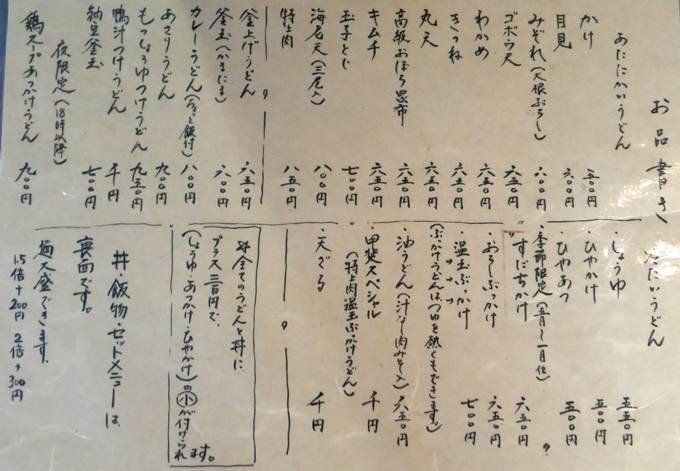 お品書き
あたたかいうどん
かけ 五〇〇円
月見 六〇〇円
みぞれ(大根おろし) 六〇〇円
ゴボウ天 六五〇円
わかめ 六五〇円
きつね 六五〇円
丸天 六五〇円
高級おぼろ昆布 六五〇円
キムチ 六五〇円
玉子とじ 七〇〇円
海老天(三尾入) 八〇〇円
特上肉 八五〇円
釜上げうどん 六五〇円
釜玉(かまたま) 六〇〇円
カレーうどん(小々と飯付) 八〇〇円
あさりうどん 九〇〇円
もっしょうゆつけうどん 九五〇円
鴨汁つけうどん 千円
納豆釜玉 七〇〇円
夜限定(18時以降)
鶏スープあつかけうどん 九〇〇円
冷たいうどん
・しょうゆ 五五〇円
・ひやかけ 五五〇円
・ひやあつ 五五〇円
・季節限定(五月〜一月位)
すだちかけ 六五〇円
・おろしぶっかけ 六五〇円
・温玉ぶっかけ 七〇〇円
(ぶっかけうどんはつゆを熱くもできます。)
・油うどん(汁なし肉みそ入) 六五〇円
・甲斐スペシャル 千円
(特上肉温玉ぶっかけうどん)
・天ざる 千円
全てのうどんと丼に
プラス三百円で、
(しょうゆ・あつかけ・ひやかけ)の小が付けられます。
丼・飯物・セットメニューは
裏面です。
麺大盛できます。
1.5倍+200円 2倍+300円